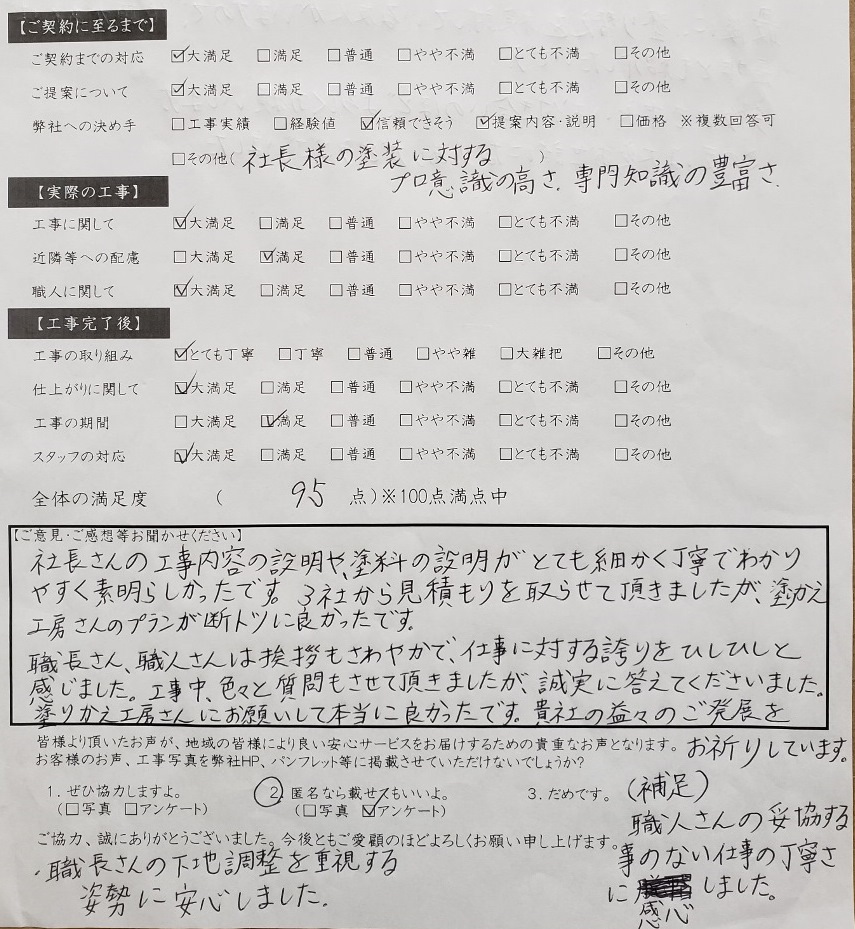 【ご契約に至るまで】
ご契約までの対応 ☑大満足 □満足 □普通 □やや不満 □とても不満 □その他
ご提案について ☑大満足 □満足 □普通 □やや不満 □とても不満 □その他
弊社への決め手 □工事実績 □経験値 ☑信頼できそう ☑提案内容・説明 □価格 ※複数回答可
□その他( 社長様の塗装に対する )
プロ意識の高さ、専門知識の豊富さ、
【実際の工事】
工事に関して ☑大満足 □満足 □普通 □やや不満 □とても不満 □その他
近隣等への配慮 □大満足 ☑満足 □普通 □やや不満 □とても不満 □その他
職人に関して ☑大満足 □満足 □普通 □やや不満 □とても不満 □その他
【工事完了後】
工事の取り組み ☑とても丁寧 □丁寧 □普通 □やや雑 □大雑把 □その他
仕上がりに関して ☑大満足 □満足 □普通 □やや不満 □とても不満 □その他
工事の期間 □大満足 ☑満足 □普通 □やや不満 □とても不満 □その他
スタッフの対応 ☑大満足 □満足 □普通 □やや不満 □とても不満 □その他
全体の満足度 ( 95 点)※100点満点中
【ご意見・ご感想等お聞かせください】
社長さんの工事内容の説明や、塗料の説明がとても細かく丁寧でわかり
やすく素明らしかったです。3社から見積もりを取らせて頂きましたが、塗りかえ
工房さんのプランが断トツに良かったです。
職長さん、職人さんは挨拶もさわやかで、仕事に対する誇りをひしひしと
感じました。工事中、色々と質問もさせて頂きましたが、誠実に答えてくださいました。
塗りかえ工房さんにお願いして本当に良かったです。貴社の益々のご発展を
お祈りしています。
皆様より頂いたお声が、地域の皆様により良い安心サービスをお届けするための貴重なお声となります。
お客様のお声、工事写真を弊社HP、パンフレット等に掲載させていただけないでしょうか?
1. ぜひ協力しますよ。 2. 匿名なら載せてもいいよ。 3. だめです。
(□写真 □アンケート) (□写真 ☑アンケート)
ご協力、誠にありがとうございました。今後ともご愛顧のほどよろしくお願い申し上げます。
・職長さんの下地調整を重視する
姿勢に安心しました。
(補足)
職人さんの妥協する
事のない仕事の丁寧さ
に感心しました。